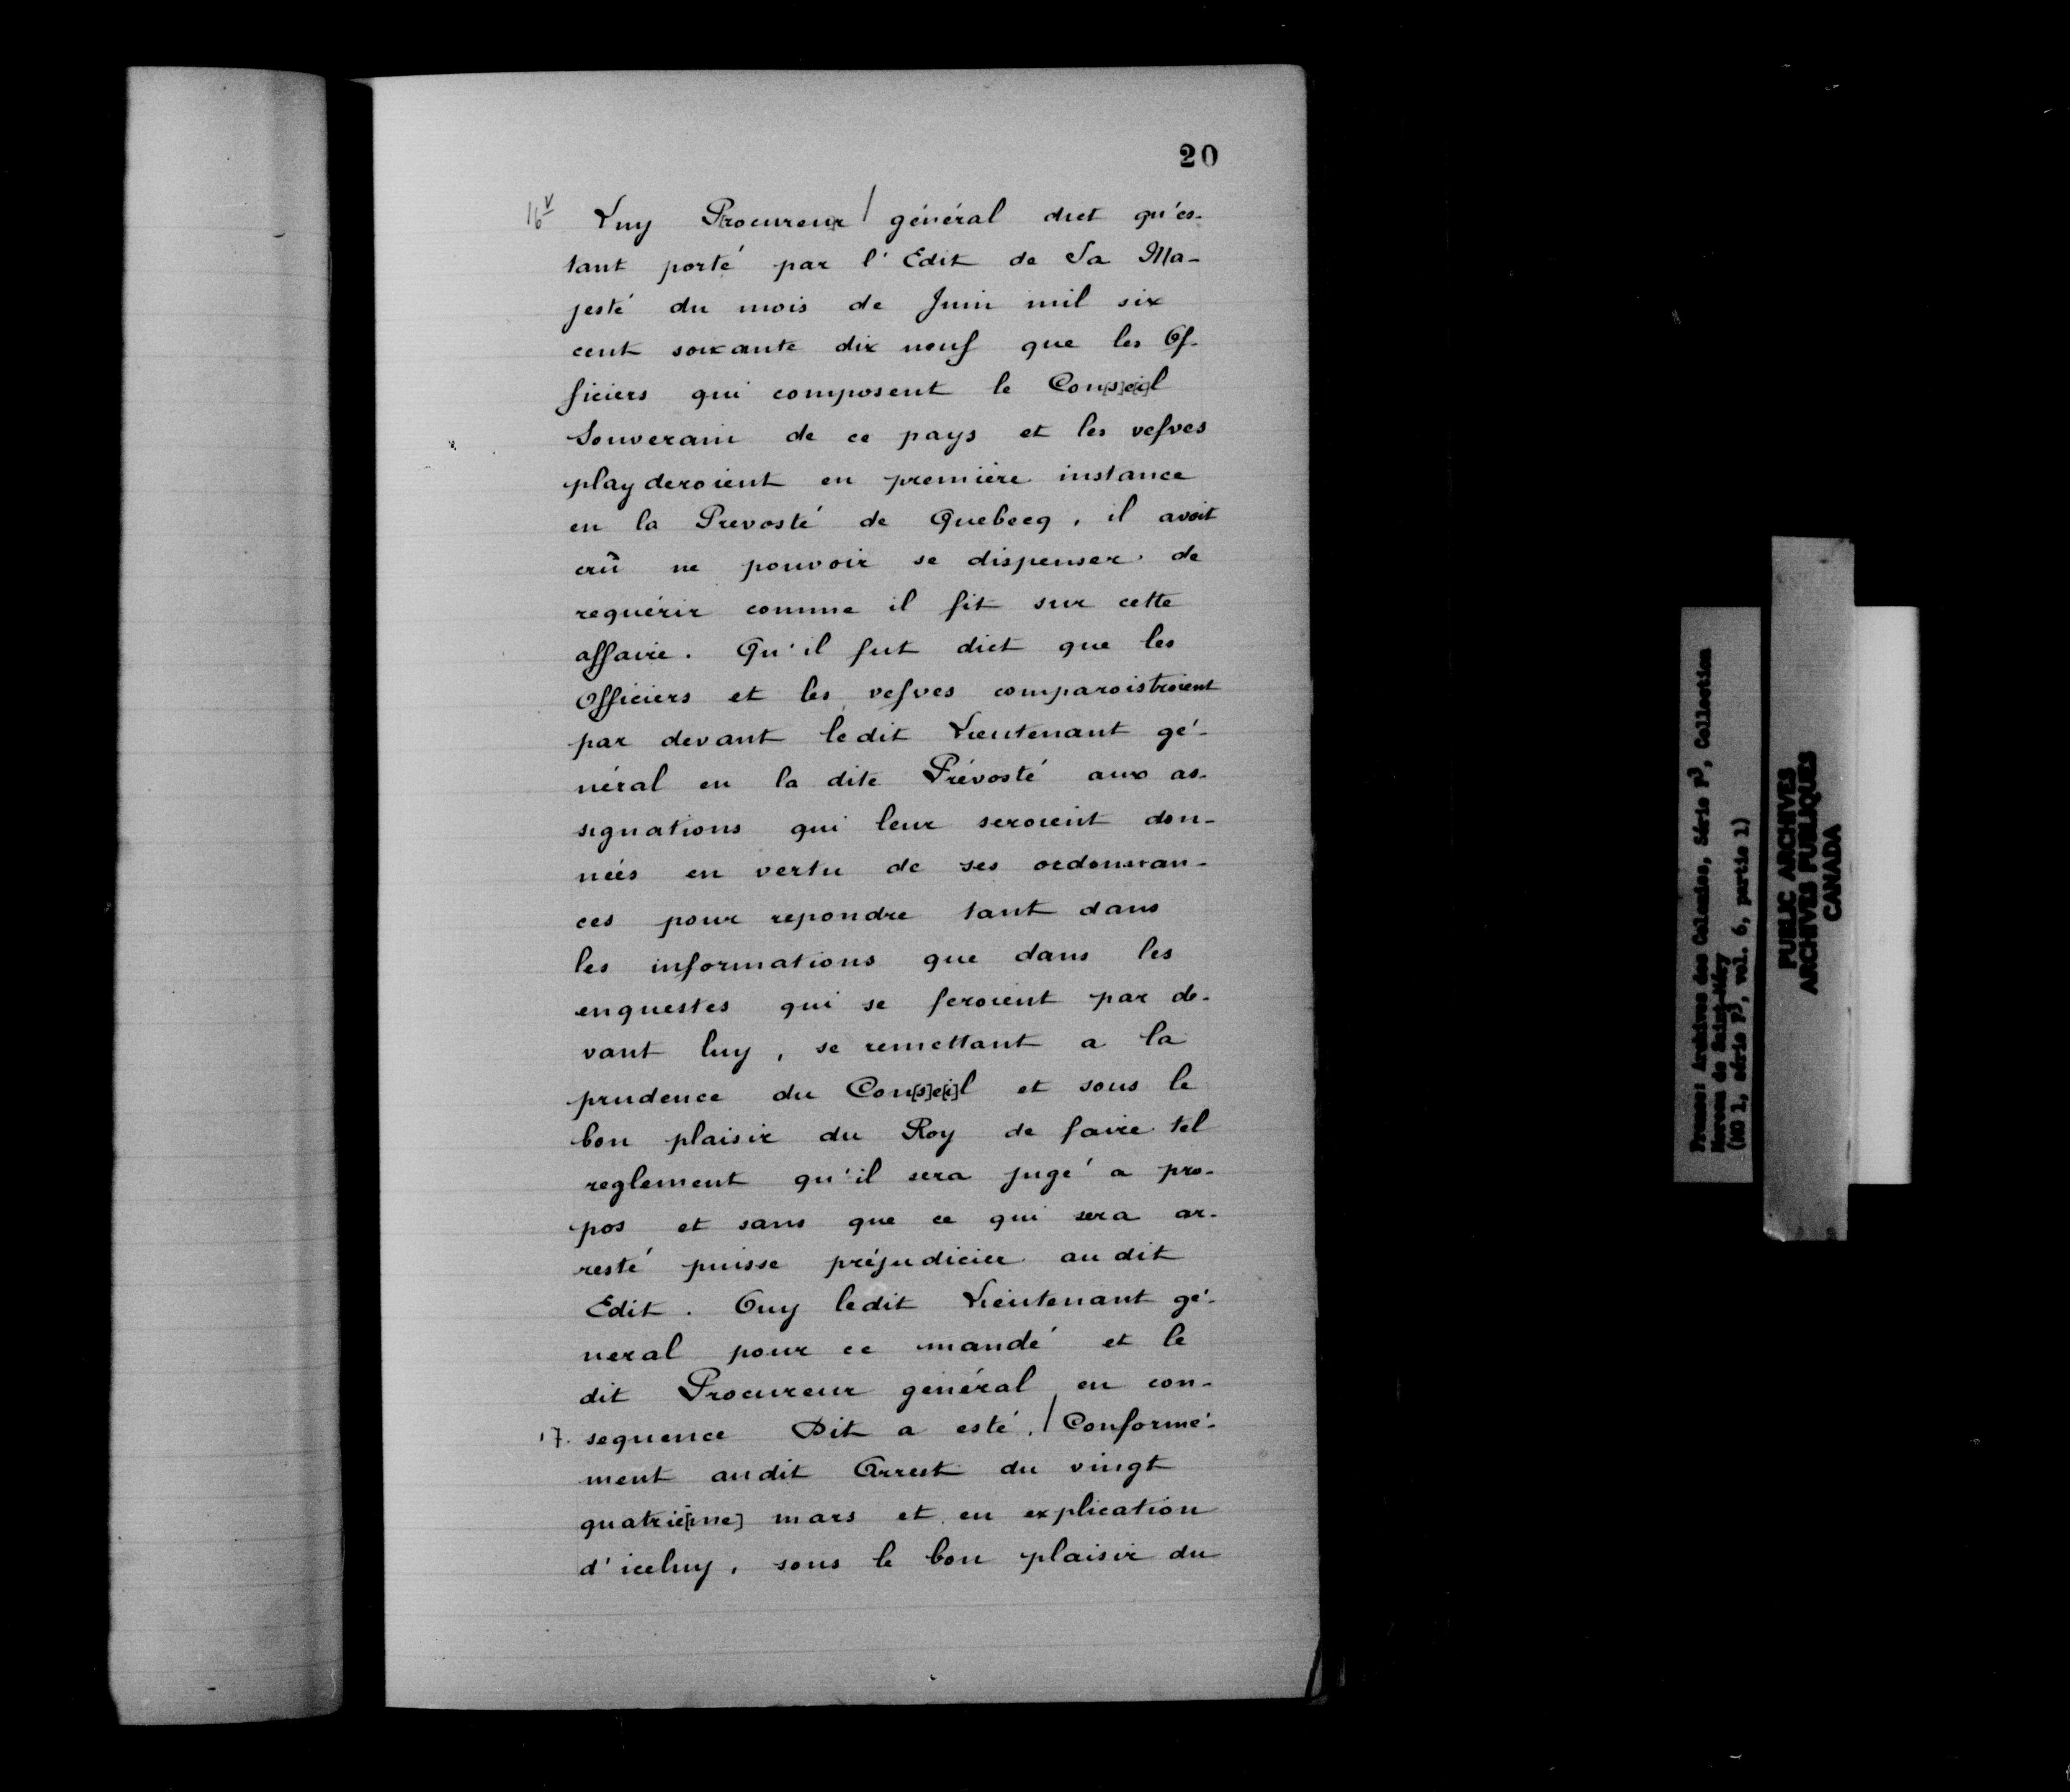 20
16v Luy Procureur / général dict qu'es-
tant porté par l'Edit de Sa Ma-
jesté du mois de Juin mil six
cent soixante dix neuf que les Of-
ficiers qui composent le Con[s]e[i]l
Souverain de ce pays et les vefves
playderoient en première instance
en la Prevosté de Quebecq, il avoit
crû ne pouvoir se dispenser de
requérir comme il fit sur cette
affaire. Qu'il fut dict que les
Officiers et les vefves comparoistroient
par devant ledit Lieutenant gé-
néral en la dite Prévosté aux as-
signations qui leur seroient don-
nées en vertu de ses ordonnan-
ces pour repondre tant dans
les informations que dans les
enquestes qui se feroient par de-
vant luy, se remettant a la
prudence du Con[s]e[i]l et sous le
bon plaisir du Roy de faire tel
reglement qu'il sera jugé a pro-
pos et sans que ce qui sera ar-
resté puisse préjudicier au dit
Edit. Ouy ledit Lieutenant gé-
neral pour ce mandé et le
dit Procureur général en con-
17. sequence Dit a esté, / Conformé-
ment audit Arrest du vingt
quatrie[me] mars et en explication
d'iceluy, sous le bon plaisir du
France: Archives des Colonies, Série F3, Collection
Moreau de Saint-Méry
(MG 1, série F3, vol. 6, partie 1)
PUBLIC ARCHIVES
ARCHIVES PUBLIQUES
CANADA